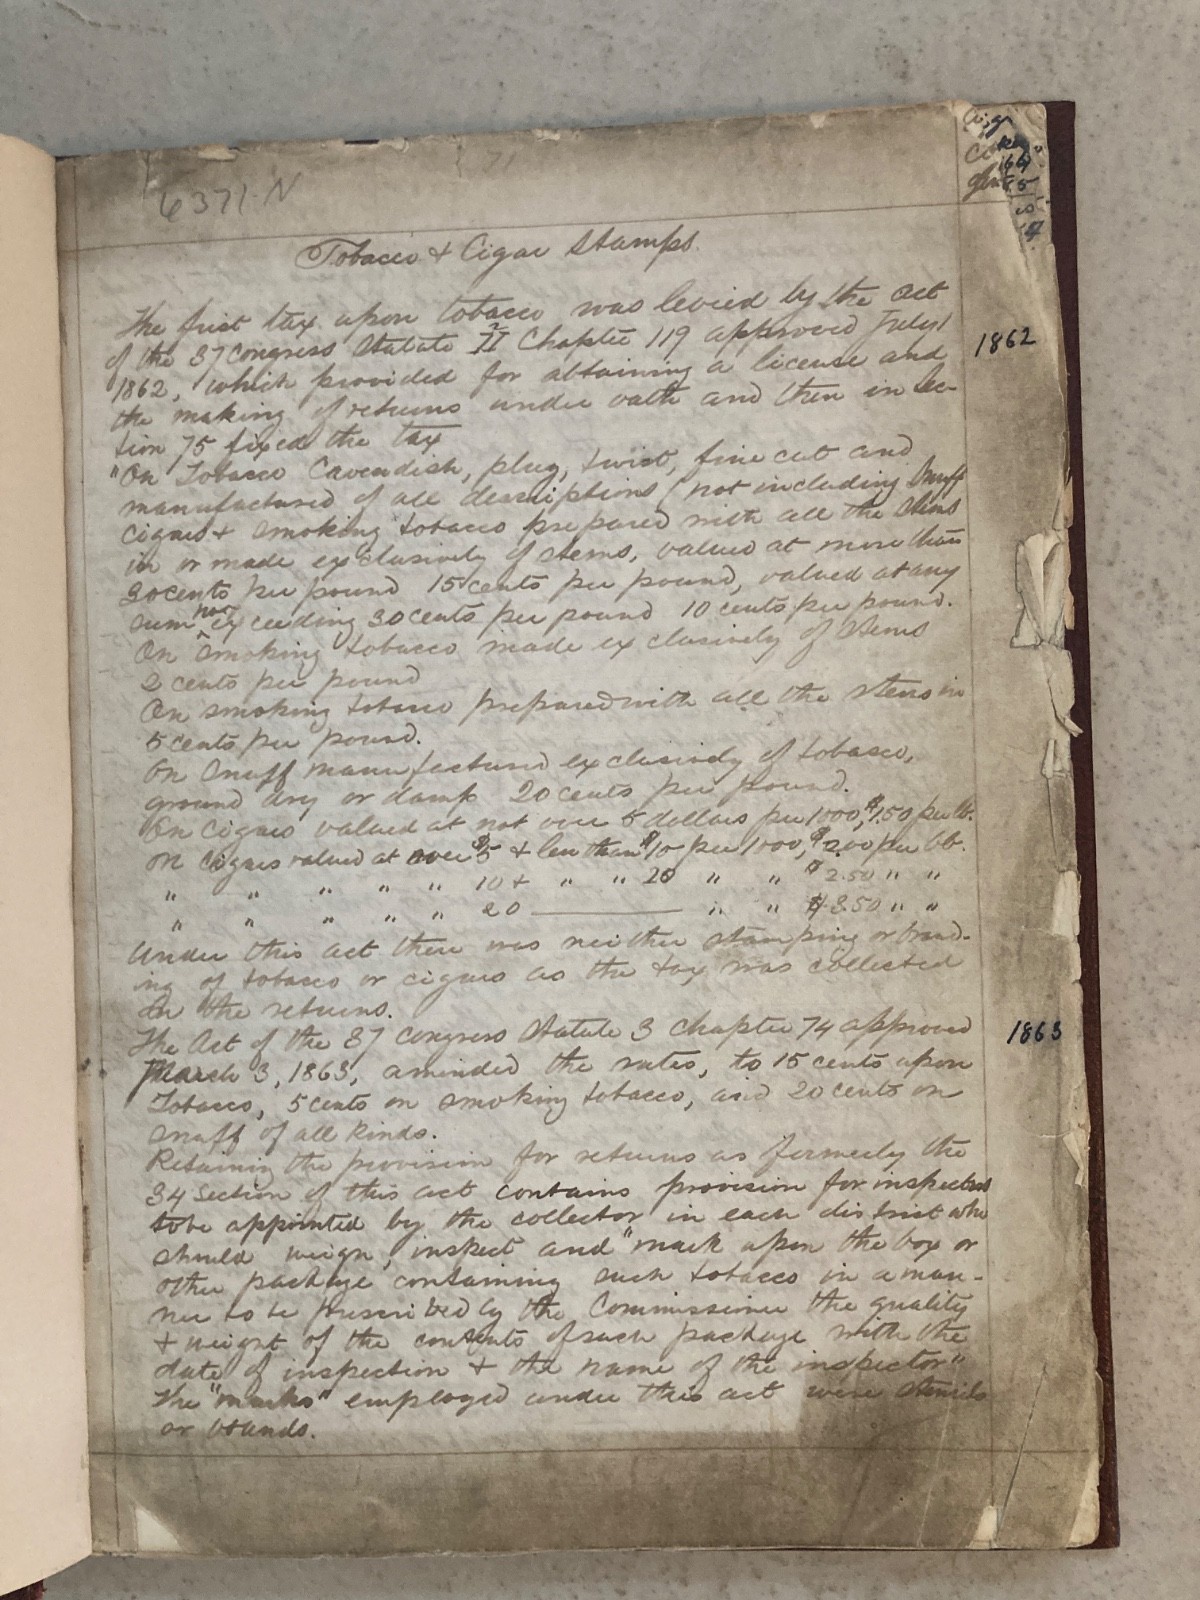 6371-N
Tobacco & Cigar Stamps.
The first tax upon tobacco was levied by the act
of the 37 Congress Statute II Chapter 119 approved July 1
1862, which provided for obtaining a license and
the making of returns under oath and then in Sec-
tion 75 fixed the tax
"On Tobacco Cavendish, plug, twist, fine cut and
manufactured of all descriptions (not including Snuff
Cigars & smoking tobacco prepared with all the stems
in or made exclusively of stems, valued at more than
30 cents per pound 15 cents per pound, valued at any
sum not exceeding 30 cents per pound 10 cents per pound.
On smoking tobacco made exclusively of stems
2 cents per pound
On smoking tobacco prepared with all the stems in
5 cents per pound.
On snuff manufactured exclusively of tobacco,
ground dry or damp 20 cents per pound.
On Cigars valued at not over 5 dollars per 1000, $1.50 per lb.
On Cigars valued at over $5 & less than $10 per 1000, $2.00 per lb.
" " " " " 10 & " " 20 " " $2.50 " "
" " " " " 20 — " " $3.50 " "
Under this act there was neither stamping or brand-
ing of tobacco or cigars as the tax was collected
on the returns.
The Act of the 37 Congress Statute 3 Chapter 74 approved
March 3, 1863, aminded the rates, to 15 cents upon
Tobacco, 5 cents on smoking tobacco, and 20 cents on
snuff of all kinds.
Retaining the provision for returns as formerly the
34 section of this act contains provision for inspectors
to be appointed by the collector in each district who
should weigh, inspect and "mark upon the box or
other package containing such tobacco in a man-
ner to be prescribed by the Commissioner the quality
& weight of the contents of such package with the
date of inspection & the name of the inspector"
The "marks" employed under this act were stencils
or brands.
1862
1863